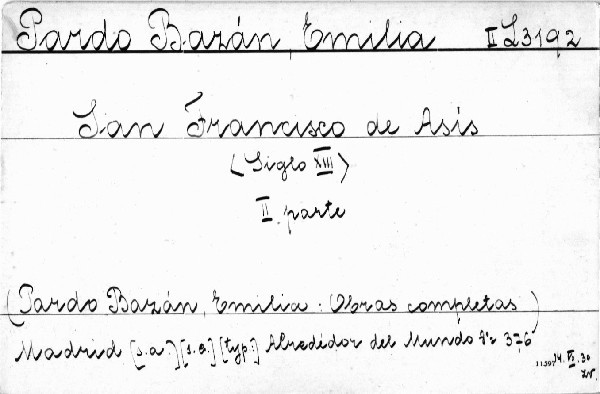 Pardo Bazán, Emilia II L3192
San Francisco de Asís
(Siglo XIII)
II. parte
(Pardo Bazán, Emilia: Obras completas)
Madrid [s.a.] [s.a.] [typ:] Alrededor del Mundo 3-6
11597 14. VI. 30